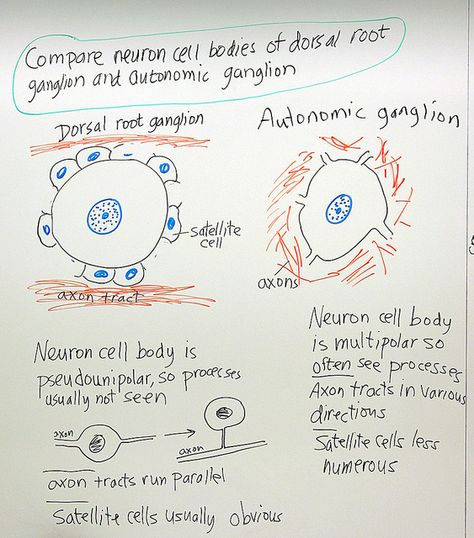 Compare neuron cell bodies of dorsal root
ganglion and autonomic ganglion
Dorsal root ganglion
Autonomic ganglion
satellite
cell
axon tract
axons
Neuron cell body is
pseudounipolar, so processes
usually not seen
axon
axon
axon tracts run parallel
Satellite cells usually obvious
Neuron cell body
is multipolar so
often see processes
Axon tracts in various
directions
Satellite cells less
numerous